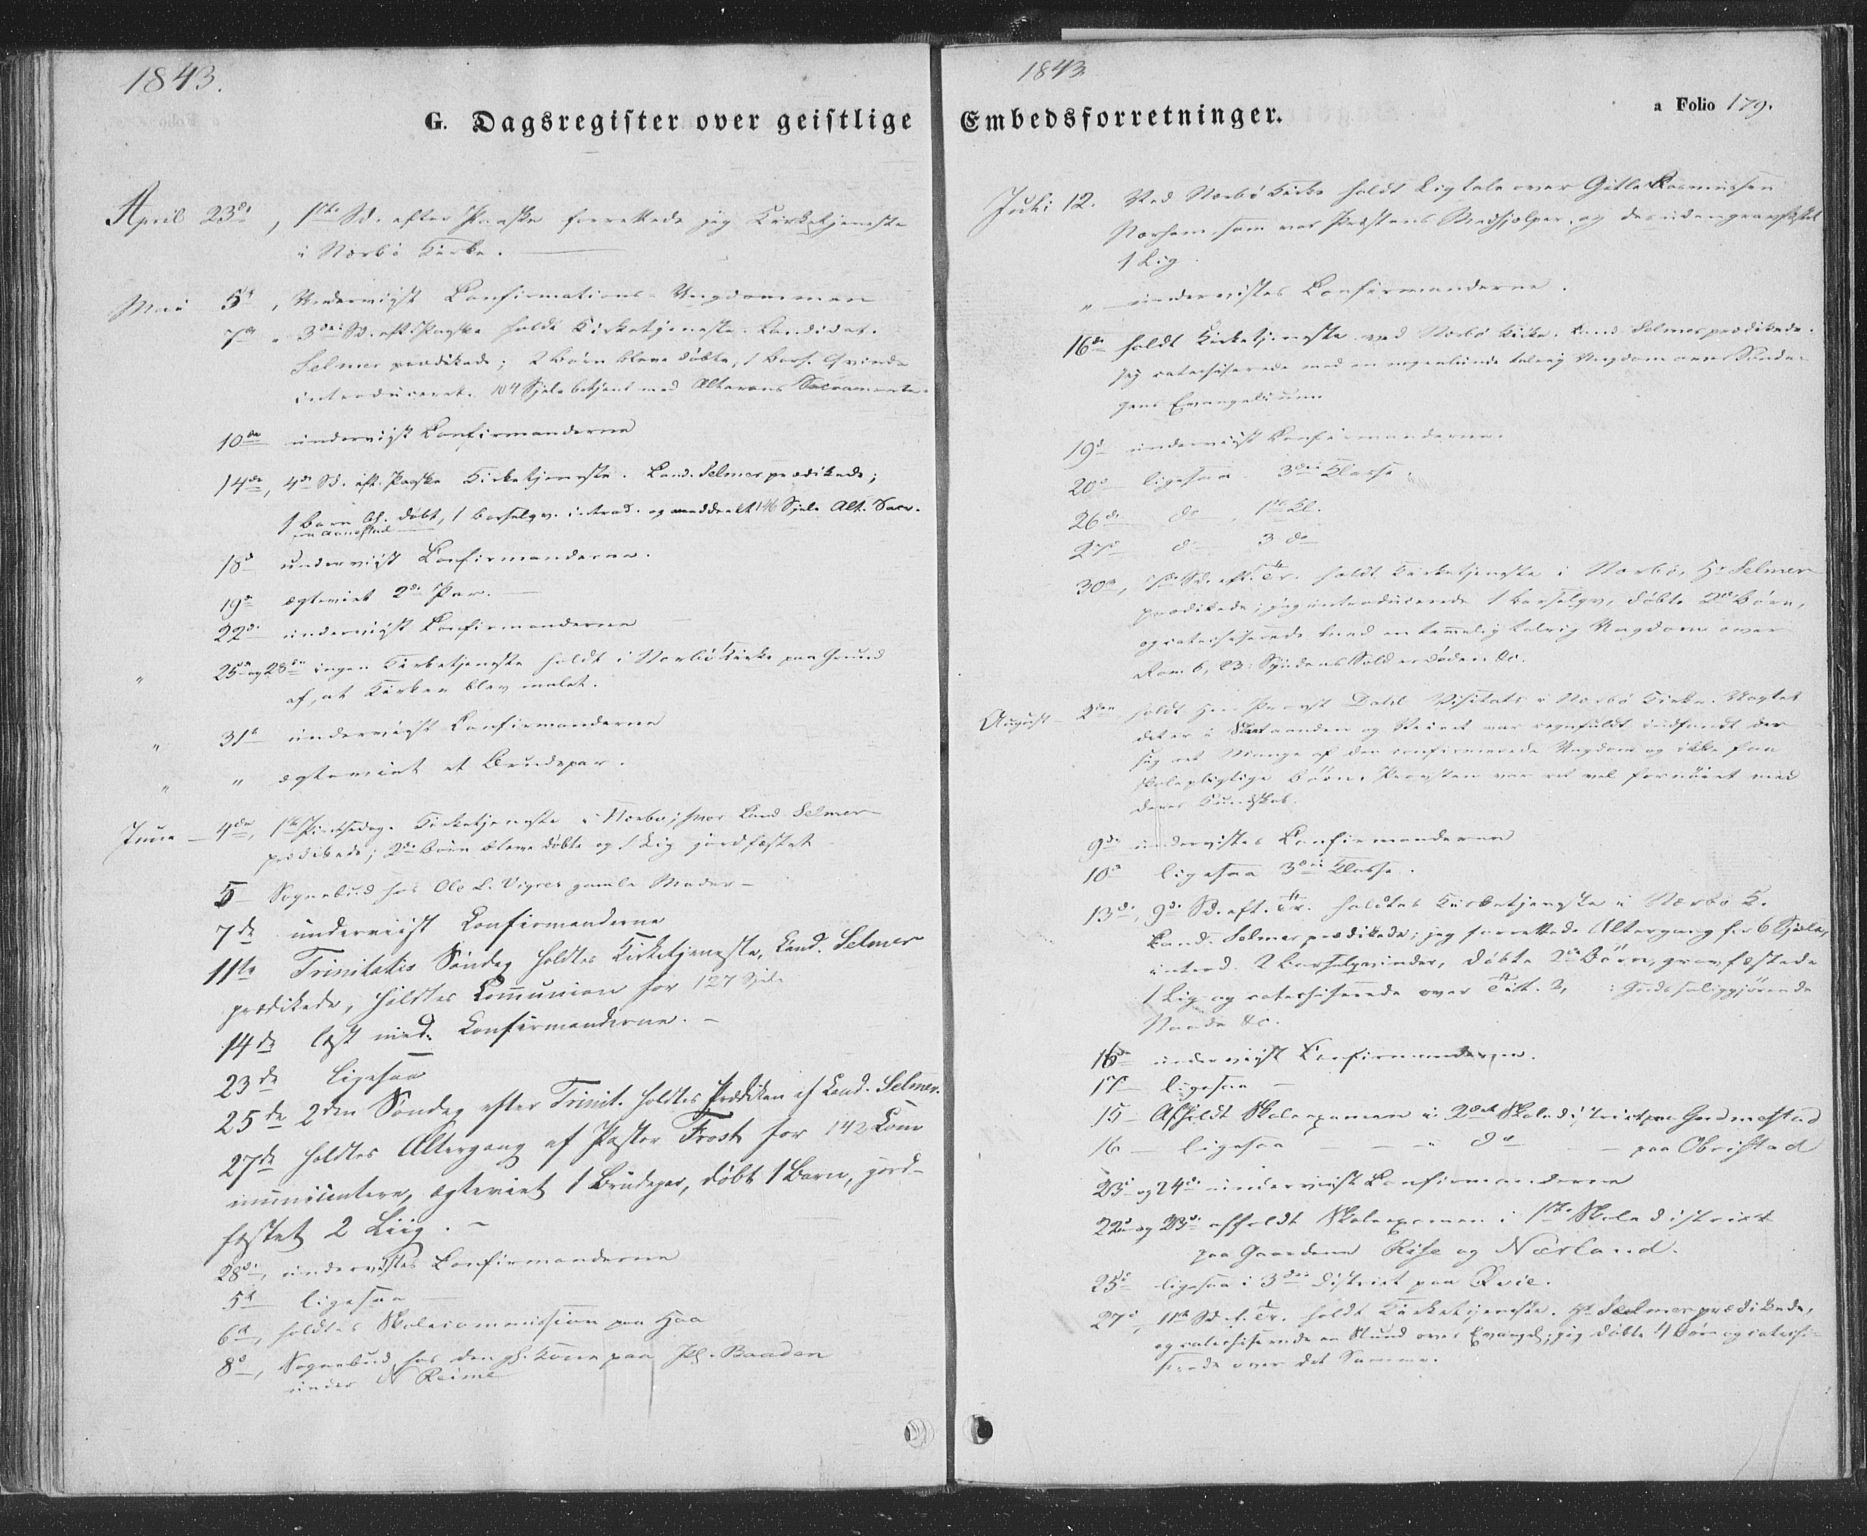 1843.
G. Dagsregister over geistlige
April 23de, 1ste Sd. efter Paaske forrettede jeg Kirketjeneste
i Nærbø Kirke.
Mai 5te, Underviist Confirmations-Ungdommen
7de " 3die Sd. eft. Paaske holdt Kirketjeneste. Candidat.
Selmer prædikede; 2 Børn bleve døbte, 1 Bars. Qvinde
introduceret. 104 Sjele betjent med Alterens Sacramente.
10de underviist Confirmanderne
14de, 4de Sd. eft. Paaske Kirketjeneste. Cand. Selmer prædikede;
1 Barn bl. døbt, 1 Barselqv. introd. og meddeelt 146 Sjele Alt. Sacr.
18de underviist Confirmanderne.
19de ægteviet 2de Par.
22de underviist Confirmanderne
" 25de og 28de ingen Kirketjeneste holdt i Nærbø Kirke paa Grund
af, at Kirken blev malet.
" 31te underviist Confirmanderne
" " ægteviet et Brudepar.
Juni 4de, 1ste Pintsedag. Kirketjeneste i Nærbø, hvor Cand. Selmer
prædikede; 2de Børn bleve døbte og 1 Lig jordfæstet
5 Sognebud hos Ole L. Vigres gamle Moder
7de underviist Confirmanderne
11te Trinitatis Søndag holdtes Kirketjeneste, Cand. Selmer
prædikede, holdtes Communion for 127 Sjele
14de læst med Confirmanderne.
23de ligesaa
25de 2den Søndag efter Trinit. holdtes Prædiken af Cand. Selmer.
27de holdtes Altergang af Pastor Frost for 142 Com
municantere, ægteviet 1 Brudepar, døbt 1 Barn, jord-
fæstet 2 Liig.
28de, undervistes Confirmanderne
5te ligesaa
6te, holdtes Skolecommission paa Haa
8de, Sognebud hos den gl. Kone paa Pl. Braaden
under N Reime
1843.
Embedsforretninger.
a Folio 179.
Juli 12. Ved Nærbø Kirke holdt Ligtale over Gitle Rasmussen
Nærheim som var Præstens Medhjælper, og desuden gravfæstet
1 Lig.
" undervistes Confirmanderne.
16de holdt Kirketjeneste ved Nærbø Kirke. Cand. Selmer prædikede.
Jeg catechiserede med en nogenlunde talrig Ungdom over Sønda-
gens Evangelium
19de underviist Confirmanderne.
20de ligesaa 3die Klasse.
26de do 1ste Cl.
27de do 3 do
30te, Sd. eft. Tr. holdt Kirketjeneste i Nærbø, Hr Selmer
prædikede; jeg introducerede 1 Barselqv, døbte 2de Børn,
og catechiserede med en temmelig talrig Ungdom over
Rom. 6, 23: Syndens Sold er Døden &c.
August 2den holdt Herr Provst Dahl Visitats i Nærbø Kirke. Uagtet
det er i Slaataanden og Veiret var regnfuldt indfandt der
sig ret Mange af den confirmerede Ungdom og ikke faa
skolepligtige Børn. Provsten var ret vel fornøiet med
deres Kundskab.
9de undervistes Confirmanderne
10de ligesaa 3die Klasse.
13de, 9de Sd. eft. Tr. holdtes Kirketjeneste i Nærbø K.
Cand. Selmer prædikede; jeg forrettede Altergang for 6 Sjele,
introd. 2 Barselqvinder, døbte 2de Børn, gravfæstede
1 Lig og catechiserede over Tit. 2, : Guds saliggjørende
Naade &c.
16de underviist Confirmanderne.
17 ligesaa
15 Afholdt Skoleexamen i 2det Skoledistrict paa Grødmestad
16 ligesaa — — " do — — paa Obrestad
23de og 24de underviist Confirmanderne
22de og 23de afholdt Skoleexamen i 1ste Skoledistrict
paa Gaardene Rise og Nærland.
25de ligesaa i 3die District paa Qvie.
27de, 11te Sd. e. Tr. holdt Kirketjeneste. Hr. Selmer prædikede,
og catechiserede en Stund over Evangel.; jeg døbte 4 Børn og catechi-
serede over det Samme.